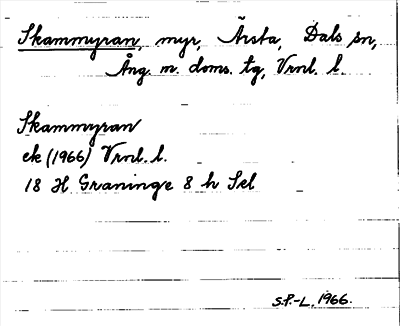 Skammyran, myr, Ärsta, Dals sn,
Ång. m. doms. tg, Vrnl. l.
Skammyran
ek (1966) Vrnl. l.
18 H Graninge 8 h Sel
S.P.-L. 1966.